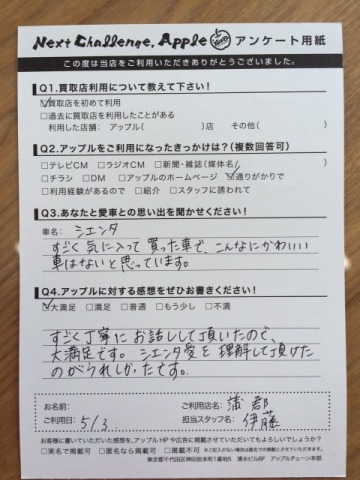 Next Challenge, Apple アンケート用紙
この度は当店をご利用いただきありがとうございました。
Q1.買取店利用について教えて下さい!
☑買取店を初めて利用
□過去に買取店を利用したことがある
利用した店舗： アップル( )店 その他( )
Q2.アップルをご利用になったきっかけは?(複数回答可)
□テレビCM □ラジオCM □新聞・雑誌(媒体名 )
□チラシ □DM □アップルのホームページ ☑通りがかりで
□利用経験があるので □紹介 □スタッフに誘われて
Q3.あなたと愛車との思い出を聞かせください!
車名： シエンタ
すごく気に入って買った車で、こんなにかわいい
車はないと思っています。
Q4.アップルに対する感想をぜひお書きください!
☑大満足 □満足 □普通 □もう少し □不満
すごく丁寧にお話しして頂いたので、
大満足です。シエンタ愛を理解して頂けた
のがうれしかったです。
お名前： ご利用店名： 蒲郡
ご利用日： 5/3 担当スタッフ名： 伊藤
お客様に書いていただいた感想を、アップルHPや広告に掲載させていただいてもよろしいでしょうか?
□実名で掲載可 □匿名なら掲載可 □不可 ※ご記入がない場合は匿名での掲載とさせていただきます。
東京都千代田区神田岩本町1番地5 清水ビル6F アップルチェーン本部